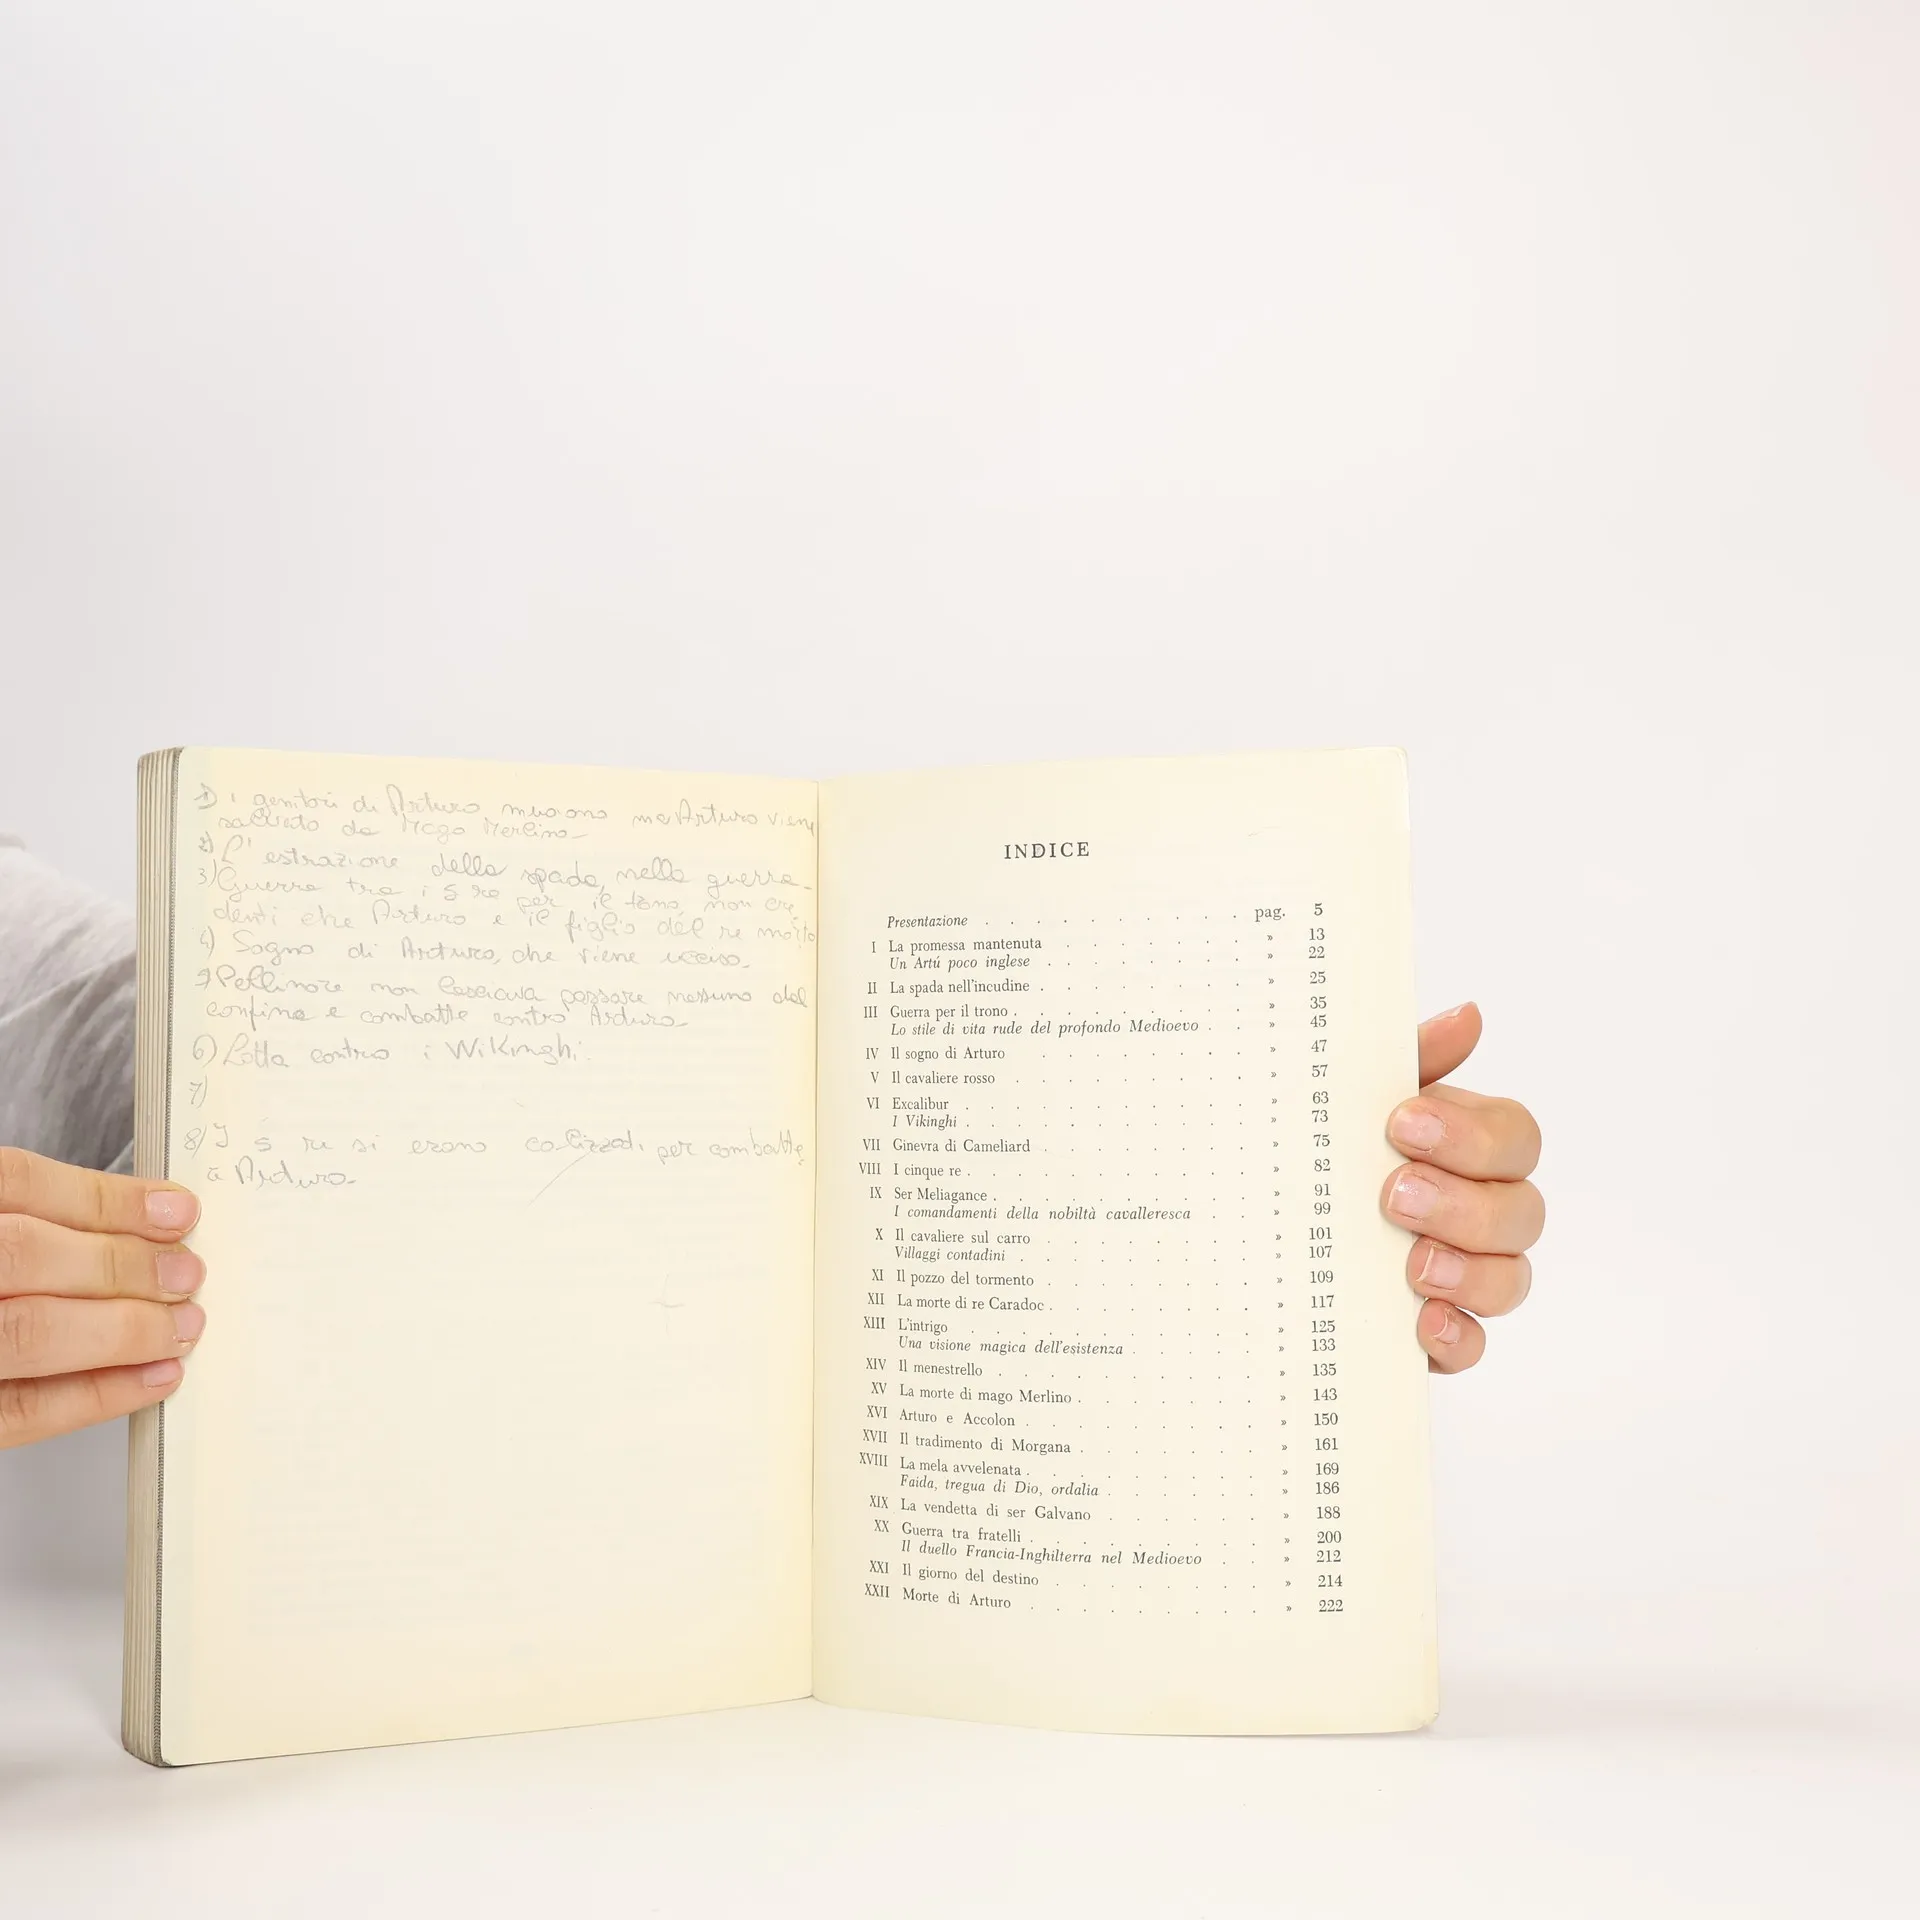 1) i genitori di Arturo muoiono ma Arturo viene
salvato da Mago Merlino
2) L' estrazione della spada, nella guerra
3) Guerra tra i 5 re per il tono, non cre
denti che Arturo e il figlio del re morto
4) Sogno di Arturo, che viene ucciso.
Pellinore non lasciava passare nessuno dal
confine e combatte contro Arturo
6) Lotta contro i Wikinghi.
7)
8) I 5 re si erano per combatte
a Arturo
INDICE
Presentazione . . . . . . . . . . pag. 5
I La promessa mantenuta . . . . . . . » 13
Un Artú poco inglese . . . . . . . . » 22
II La spada nell'incudine . . . . . . . . » 25
III Guerra per il trono . . . . . . . . . » 35
Lo stile di vita rude del profondo Medioevo . . » 45
IV Il sogno di Arturo . . . . . . . . » 47
V Il cavaliere rosso . . . . . . . . . » 57
VI Excalibur . . . . . . . . . . . » 63
I Vikinghi . . . . . . . . . . . » 73
VII Ginevra di Cameliard . . . . . . . . » 75
VIII I cinque re . . . . . . . . . . . » 82
IX Ser Meliagance . . . . . . . . . . » 91
I comandamenti della nobiltà cavalleresca . . » 99
X Il cavaliere sul carro . . . . . . . . » 101
Villaggi contadini . . . . . . . . . » 107
XI Il pozzo del tormento . . . . . . . . » 109
XII La morte di re Caradoc . . . . . . . . » 117
XIII L'intrigo . . . . . . . . . . . » 125
Una visione magica dell'esistenza . . . . . » 133
XIV Il menestrello . . . . . . . . . . » 135
XV La morte di mago Merlino . . . . . . . » 143
XVI Arturo e Accolon . . . . . . . . . » 150
XVII Il tradimento di Morgana . . . . . . . » 161
XVIII La mela avvelenata . . . . . . . . . » 169
Faida, tregua di Dio, ordalia . . . . . . » 186
XIX La vendetta di ser Galvano . . . . . . » 188
XX Guerra tra fratelli . . . . . . . . . » 200
Il duello Francia-Inghilterra nel Medioevo . . » 212
XXI Il giorno del destino . . . . . . . . » 214
XXII Morte di Arturo . . . . . . . . . » 222